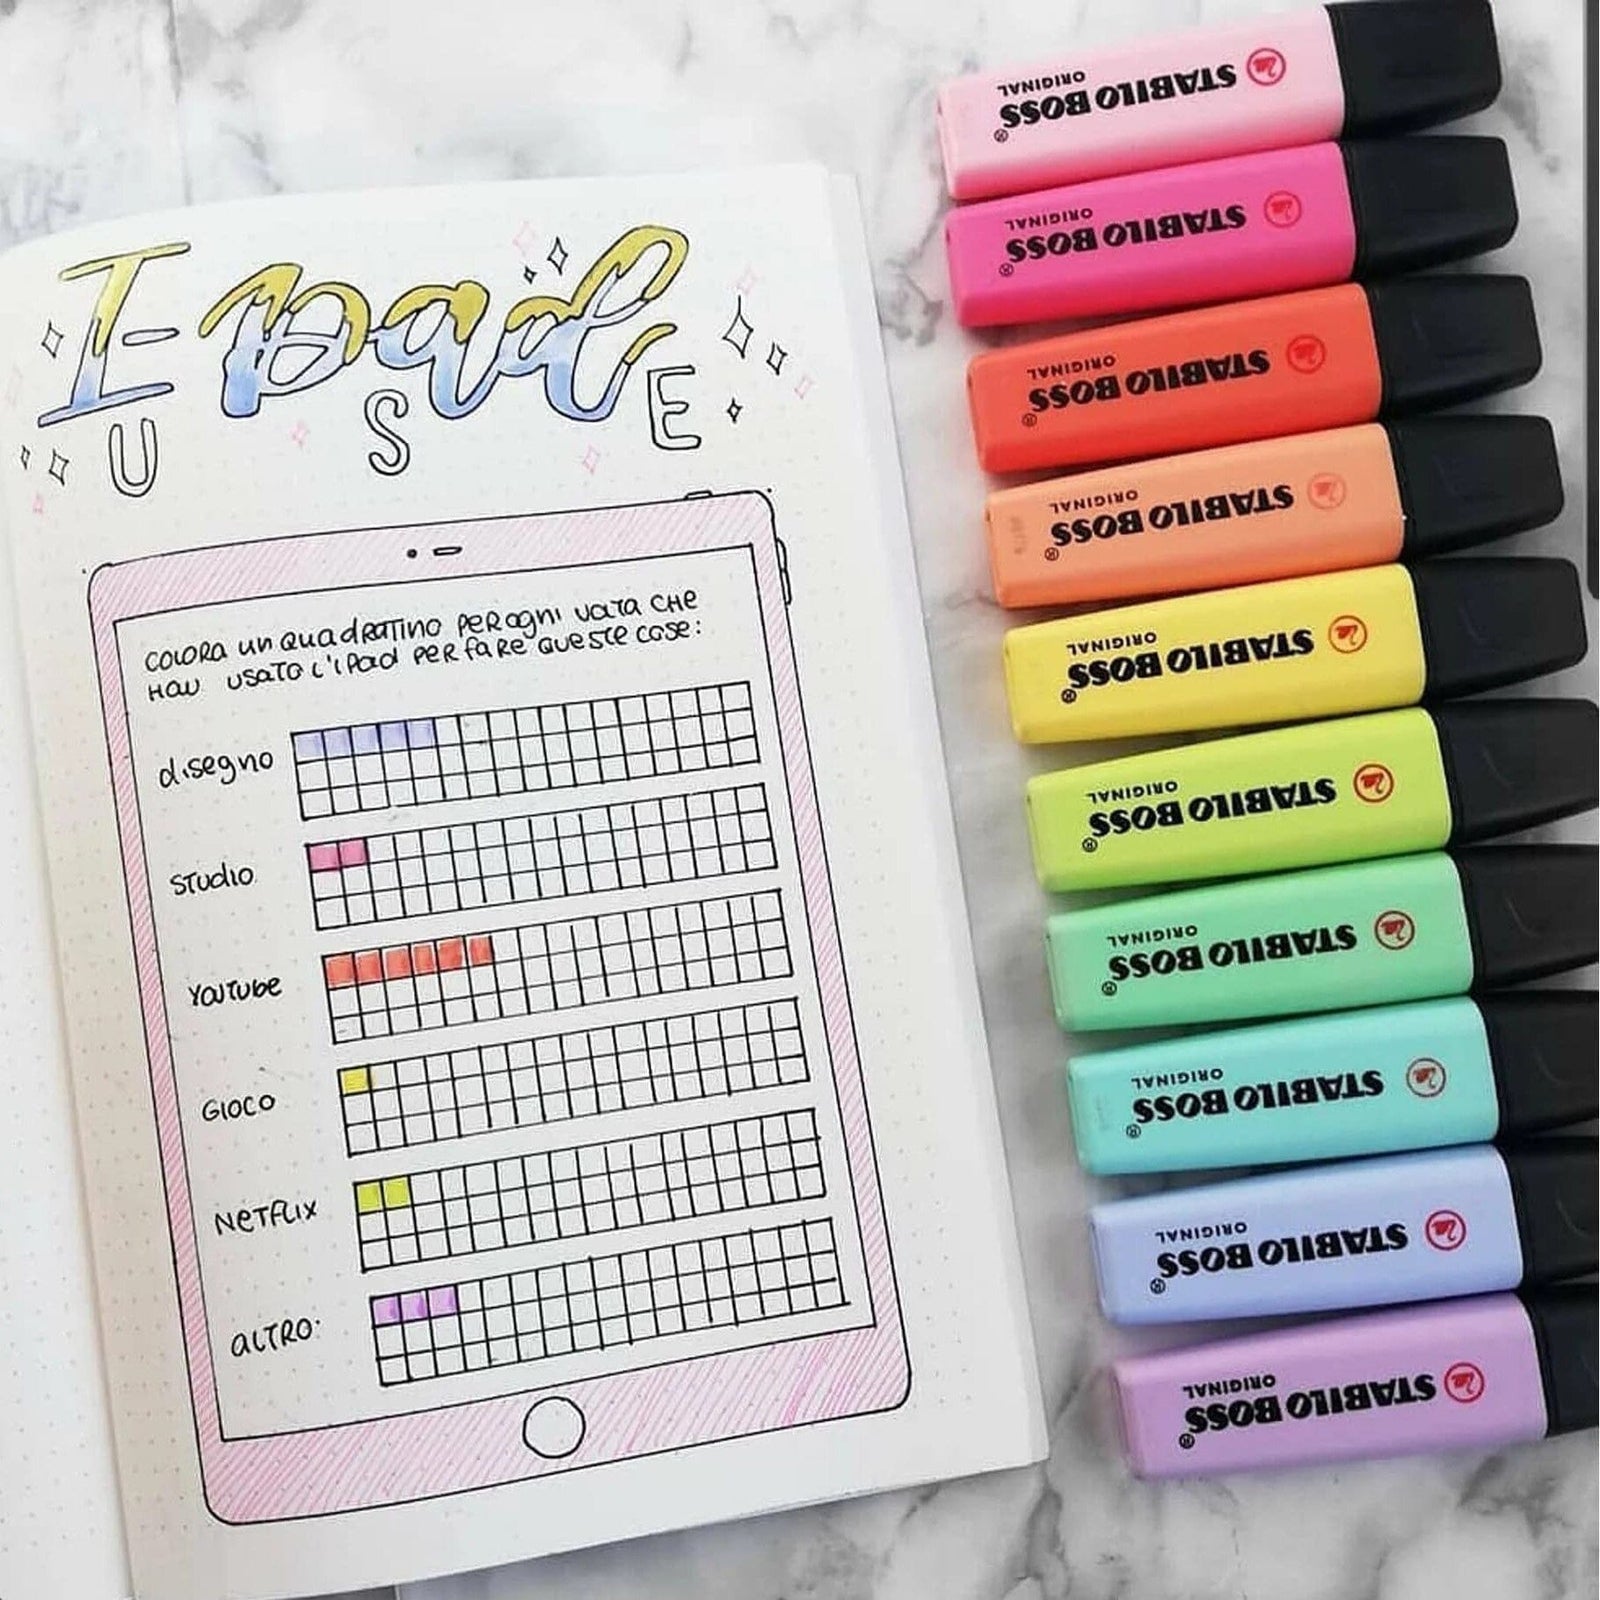 Ipad
USE
COLORA un QuadRaTino PER OGNI VOLTA CHe
HAI USATO L'iPad PER FARE QUESTE COSE:
disegno
STUDIO
YOUTUBE
GIOCO
NETFLIX
ALTRO:
STABILO BOSS®
ORIGINAL
STABILO BOSS®
ORIGINAL
STABILO BOSS®
ORIGINAL
STABILO BOSS®
ORIGINAL
STABILO BOSS®
ORIGINAL
STABILO BOSS®
ORIGINAL
STABILO BOSS®
ORIGINAL
STABILO BOSS®
ORIGINAL
STABILO BOSS®
ORIGINAL
STABILO BOSS®
ORIGINAL